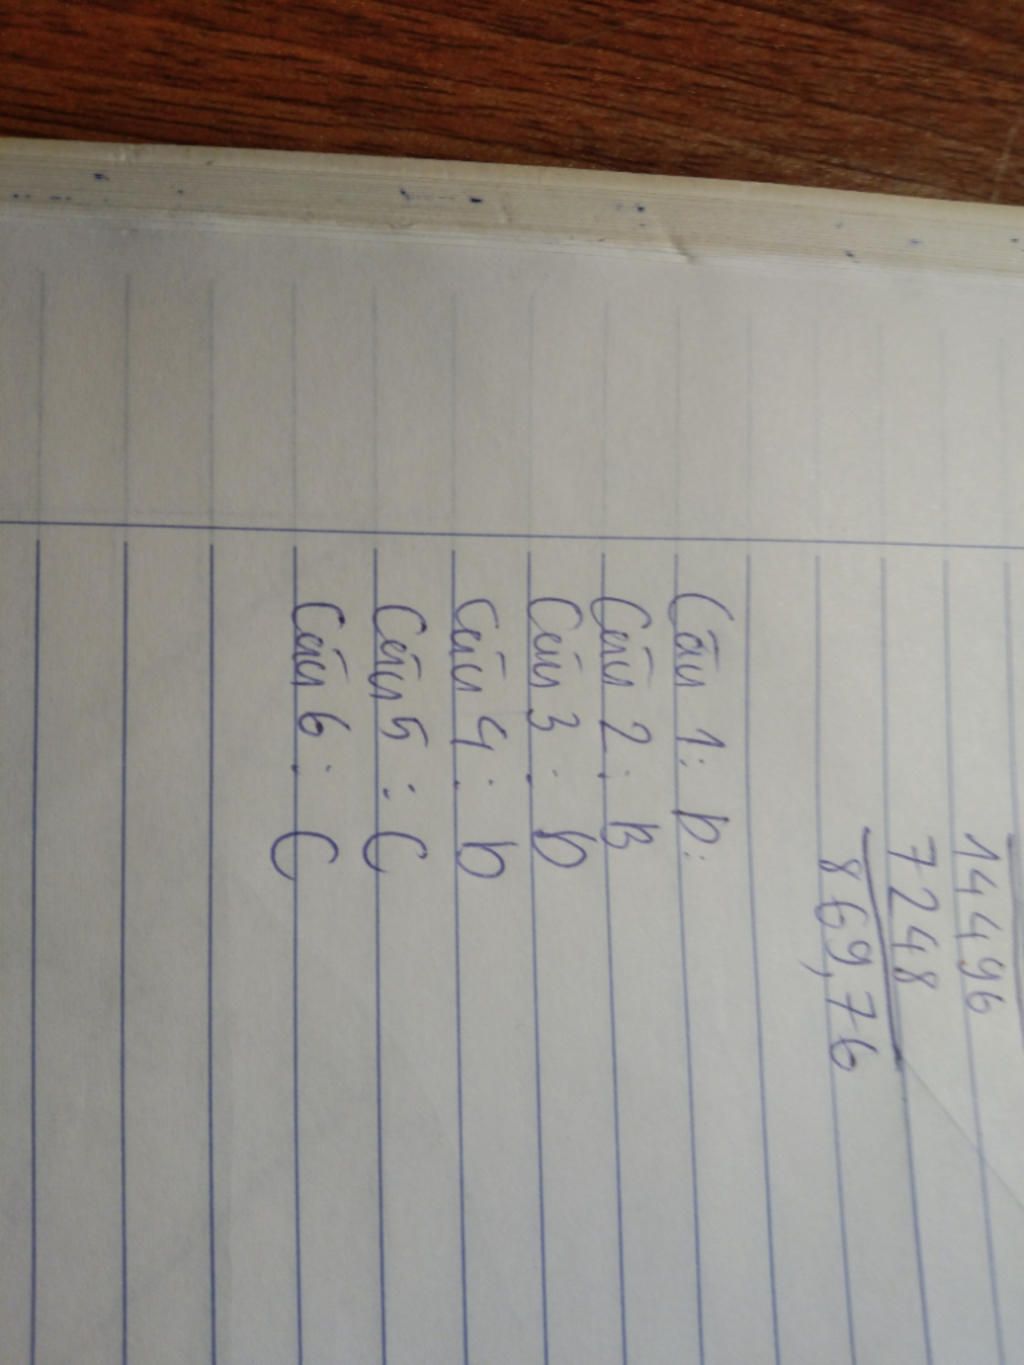 14496
7248
869,76
Câu 1: D:
Câu 2: B
Câu 3: D
Câu 4: D
Câu 5: C
Câu 6: C